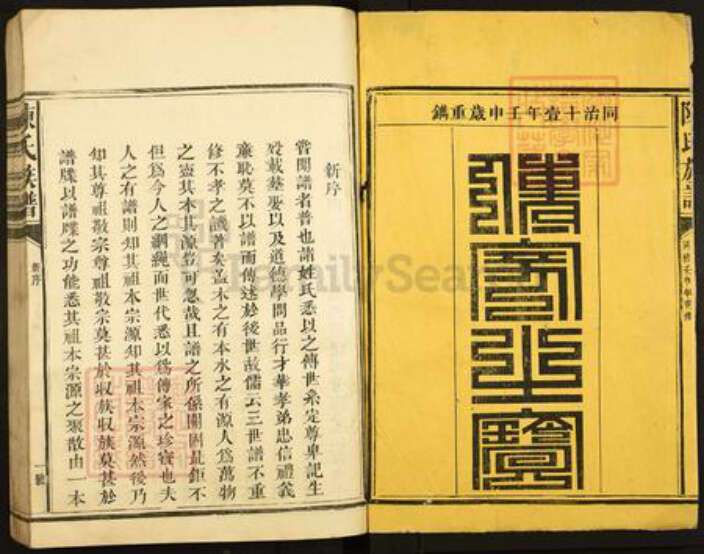 同治十壹年壬申歲重鐫
傳家至寶
陳氏族譜
新序
嘗聞譜者普也諸姓氏悉以之傳世系定尊卑記生
歿載塟娶以及道德學問品行才華孝弟忠信禮義
廉恥莫不以譜而傳述於後世故儒云三世譜不重
修不孝之譏著矣盖木之有本水之有源人爲萬物
之靈其本其源豈可忽哉且譜之所係關固匪鉅不
但爲今人之綱繩而世代悉以爲傳家之珍寶也夫
人之有譜則知其祖本宗源知其祖本宗源然後乃
知其尊祖敬宗尊祖敬宗莫甚於収族収族莫甚於
譜牒以譜牒之功能悉其祖本宗源之聚散由一本
陳氏族譜
新序
一號
FamilySearch